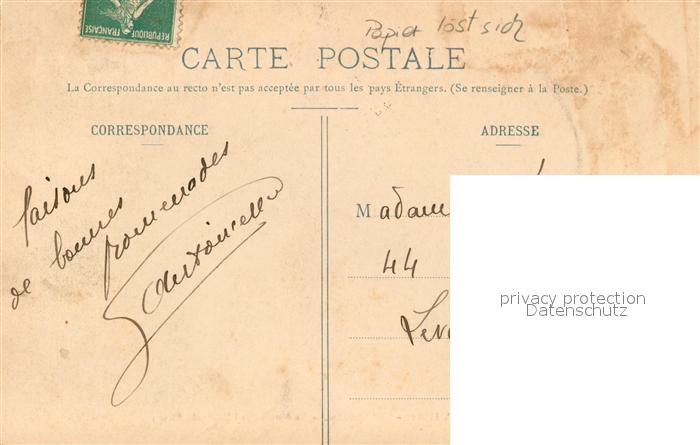 REPUBLIQUE FRANÇAISE
Papier löst sich
CARTE POSTALE
La Correspondance au recto n'est pas acceptée par tous les pays Étrangers. (Se renseigner à la Poste.)
CORRESPONDANCE
faisons
de bonnes
promenades
Antoinette
ADRESSE
Madam
44
Lev
privacy protection
Datenschutz